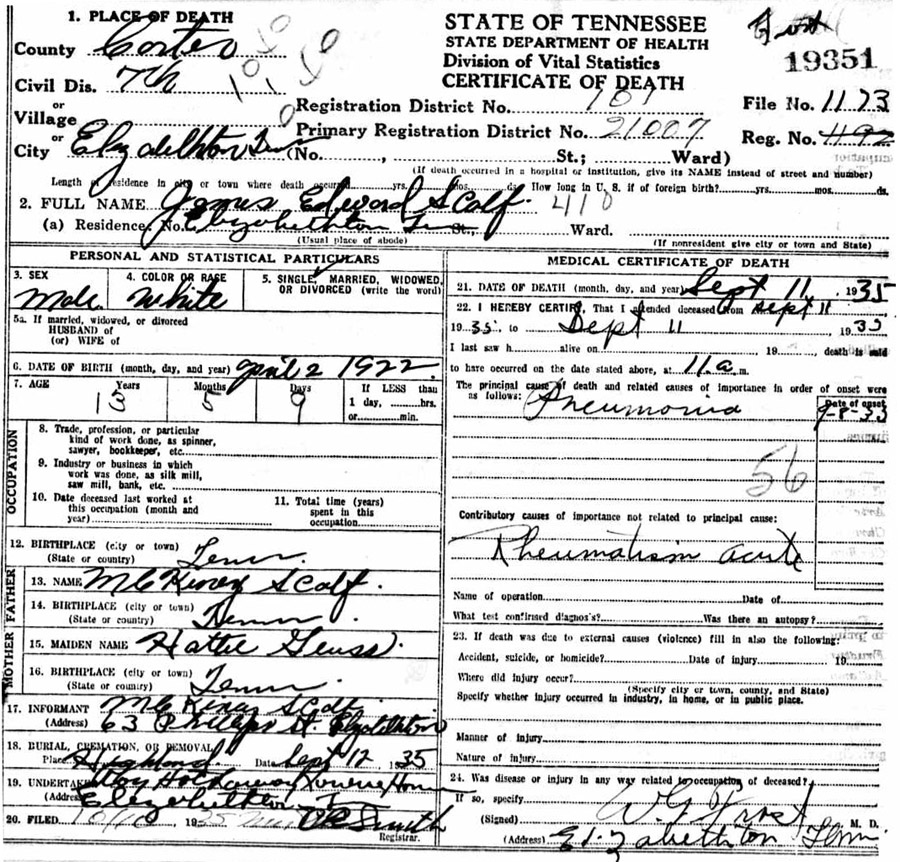 STATE OF TENNESSEE
STATE DEPARTMENT OF HEALTH
Division of Vital Statistics
CERTIFICATE OF DEATH
19351
File No. 1173
Reg. No. 1192
1. PLACE OF DEATH
County Carter
Civil Dis. 7th
or
Village
or
City Elizabethton Tenn (No. , St.; Ward)
Registration District No. 101
Primary Registration District No. 21007
(If death occurred in a hospital or institution, give its NAME instead of street and number)
Length of residence in city or town where death occurred yrs. mos. ds. How long in U. S. if of foreign birth? yrs. mos. ds.
2. FULL NAME James Edward Scalf. 410
(a) Residence. No. Elizabethton Tenn St., Ward.
(Usual place of abode)
(If nonresident give city or town and State)
PERSONAL AND STATISTICAL PARTICULARS
3. SEX
Male
4. COLOR OR RACE
White
5. SINGLE, MARRIED, WIDOWED,
OR DIVORCED (write the word)
5a. If married, widowed, or divorced
HUSBAND of
(or) WIFE of
6. DATE OF BIRTH (month, day, and year) April 2 1922
7. AGE Years Months Days If LESS than
1 day, hrs.
or min.
13 5 9
OCCUPATION
8. Trade, profession, or particular
kind of work done, as spinner,
sawyer, bookkeeper, etc.
9. Industry or business in which
work was done, as silk mill,
saw mill, bank, etc.
10. Date deceased last worked at
this occupation (month and
year)
11. Total time (years)
spent in this
occupation
12. BIRTHPLACE (city or town)
(State or country) Tenn
FATHER
13. NAME McKiney Scalf.
14. BIRTHPLACE (city or town)
(State or country) Tenn
MOTHER
15. MAIDEN NAME Hattie
16. BIRTHPLACE (city or town)
(State or country) Tenn
17. INFORMANT McKiney Scalf
(Address) 63 Phillips St. Elizabethton
18. BURIAL, CREMATION, OR REMOVAL
Place Highland Date Sept 12 1935
19. UNDERTAKER
(Address) Elizabethton T
20. FILED 10/10 1935 Smith
Registrar.
MEDICAL CERTIFICATE OF DEATH
21. DATE OF DEATH (month, day, and year) Sept 11, 1935
22. I HEREBY CERTIFY, That I attended deceased from Sept 11
1935, to Sept 11 1935
I last saw h alive on 19 , death is said
to have occurred on the date stated above, at 11 a m.
The principal cause of death and related causes of importance in order of onset were
as follows:
Date of onset
Pneumonia 9-8-33
56
Contributory causes of importance not related to principal cause:
Rheumatism acute
Name of operation Date of
What test confirmed diagnosis? Was there an autopsy?
23. If death was due to external causes (violence) fill in also the following:
Accident, suicide, or homicide? Date of injury 19
Where did injury occur?
(Specify city or town, county, and State)
Specify whether injury occurred in industry, in home, or in public place.
Manner of injury
Nature of injury
24. Was disease or injury in any way related to occupation of deceased?
If so, specify
(Signed) W G Frost, M. D.
(Address) Elizabethton Tenn